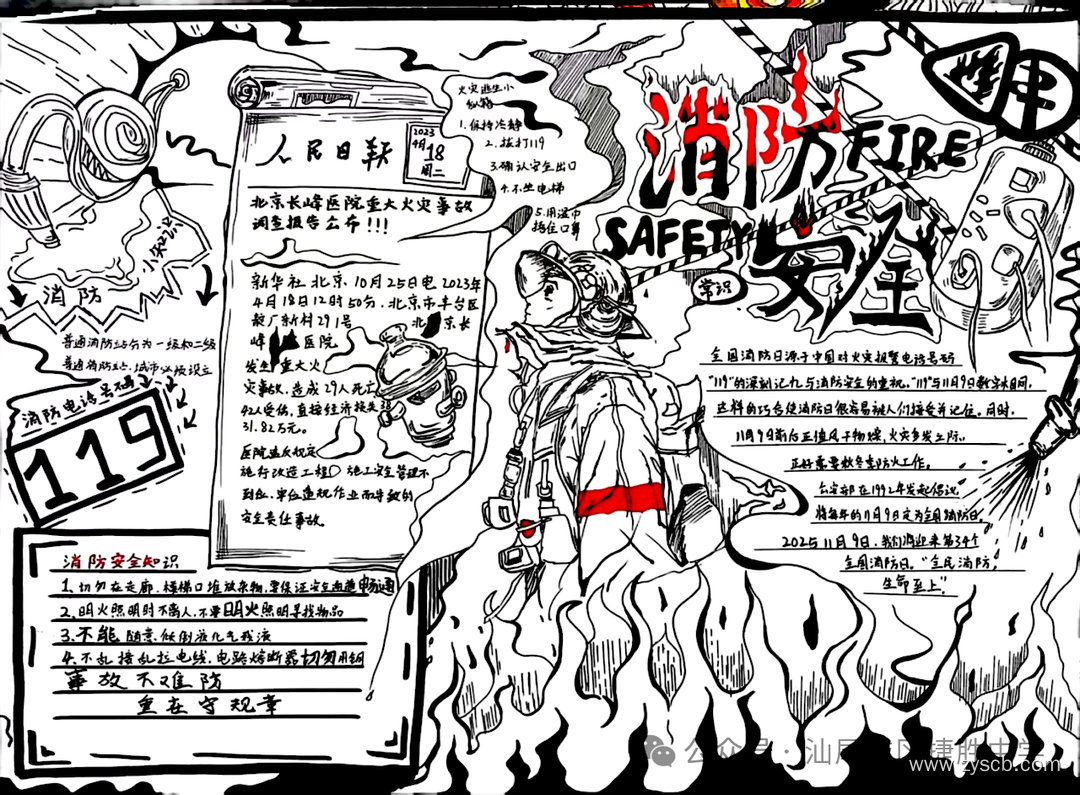 消防
FIRE
SAFETY
安全
常识
人民日
2023
4月
18
周二
北京长峰医院重大火灾事故
调查报告公布!!!
新华社北京,10月25日电 2023年
4月18日12时50分,北京市丰台区
新村291号
京长
峰
医院
发生重大火
灾事故,造成29人死亡
42人受伤,直接经济损失
31.82万元。
医院违反规定
施行改造工程
施工安全管理不
到位,单位违规作业而导致的
安全责任事故。
火灾逃生小
1.保持冷静
2.拨打119
3.确认安全出口
4.不坐电梯
5.用湿巾
捂住口鼻
消防
普通消防站分为一级和二级
普通消防站,城市必须设立
消防电话号码
119
消防安全知识
1.切勿在走廊、楼梯口堆放杂物,要保证安全通道畅通
2.明火照明时不离人,不要明火照明寻找物品
3.不能随意倾倒液化气残液
4.不乱接乱拉电线,电路熔断器切勿用铜
事故不难防
重在守规章
全国消防日源于中国对火灾报警电话号码
"119"的深刻记忆与消防安全的重视。"119"与11月9日数字相同,
这样的巧合使消防日很容易被人们接受并记住。同时,
11月9日前后正值风干物燥,火灾多发之际。
正好需要秋冬季防火工作。
公安部在1992年发起倡议,
将每年的11月9日定为全国消防日。
2025 11月9日,我们将迎来第34个
全国消防日。"全民消防,
生命至上"
公众号·汕尾
捷胜中学
www.zyscb.com